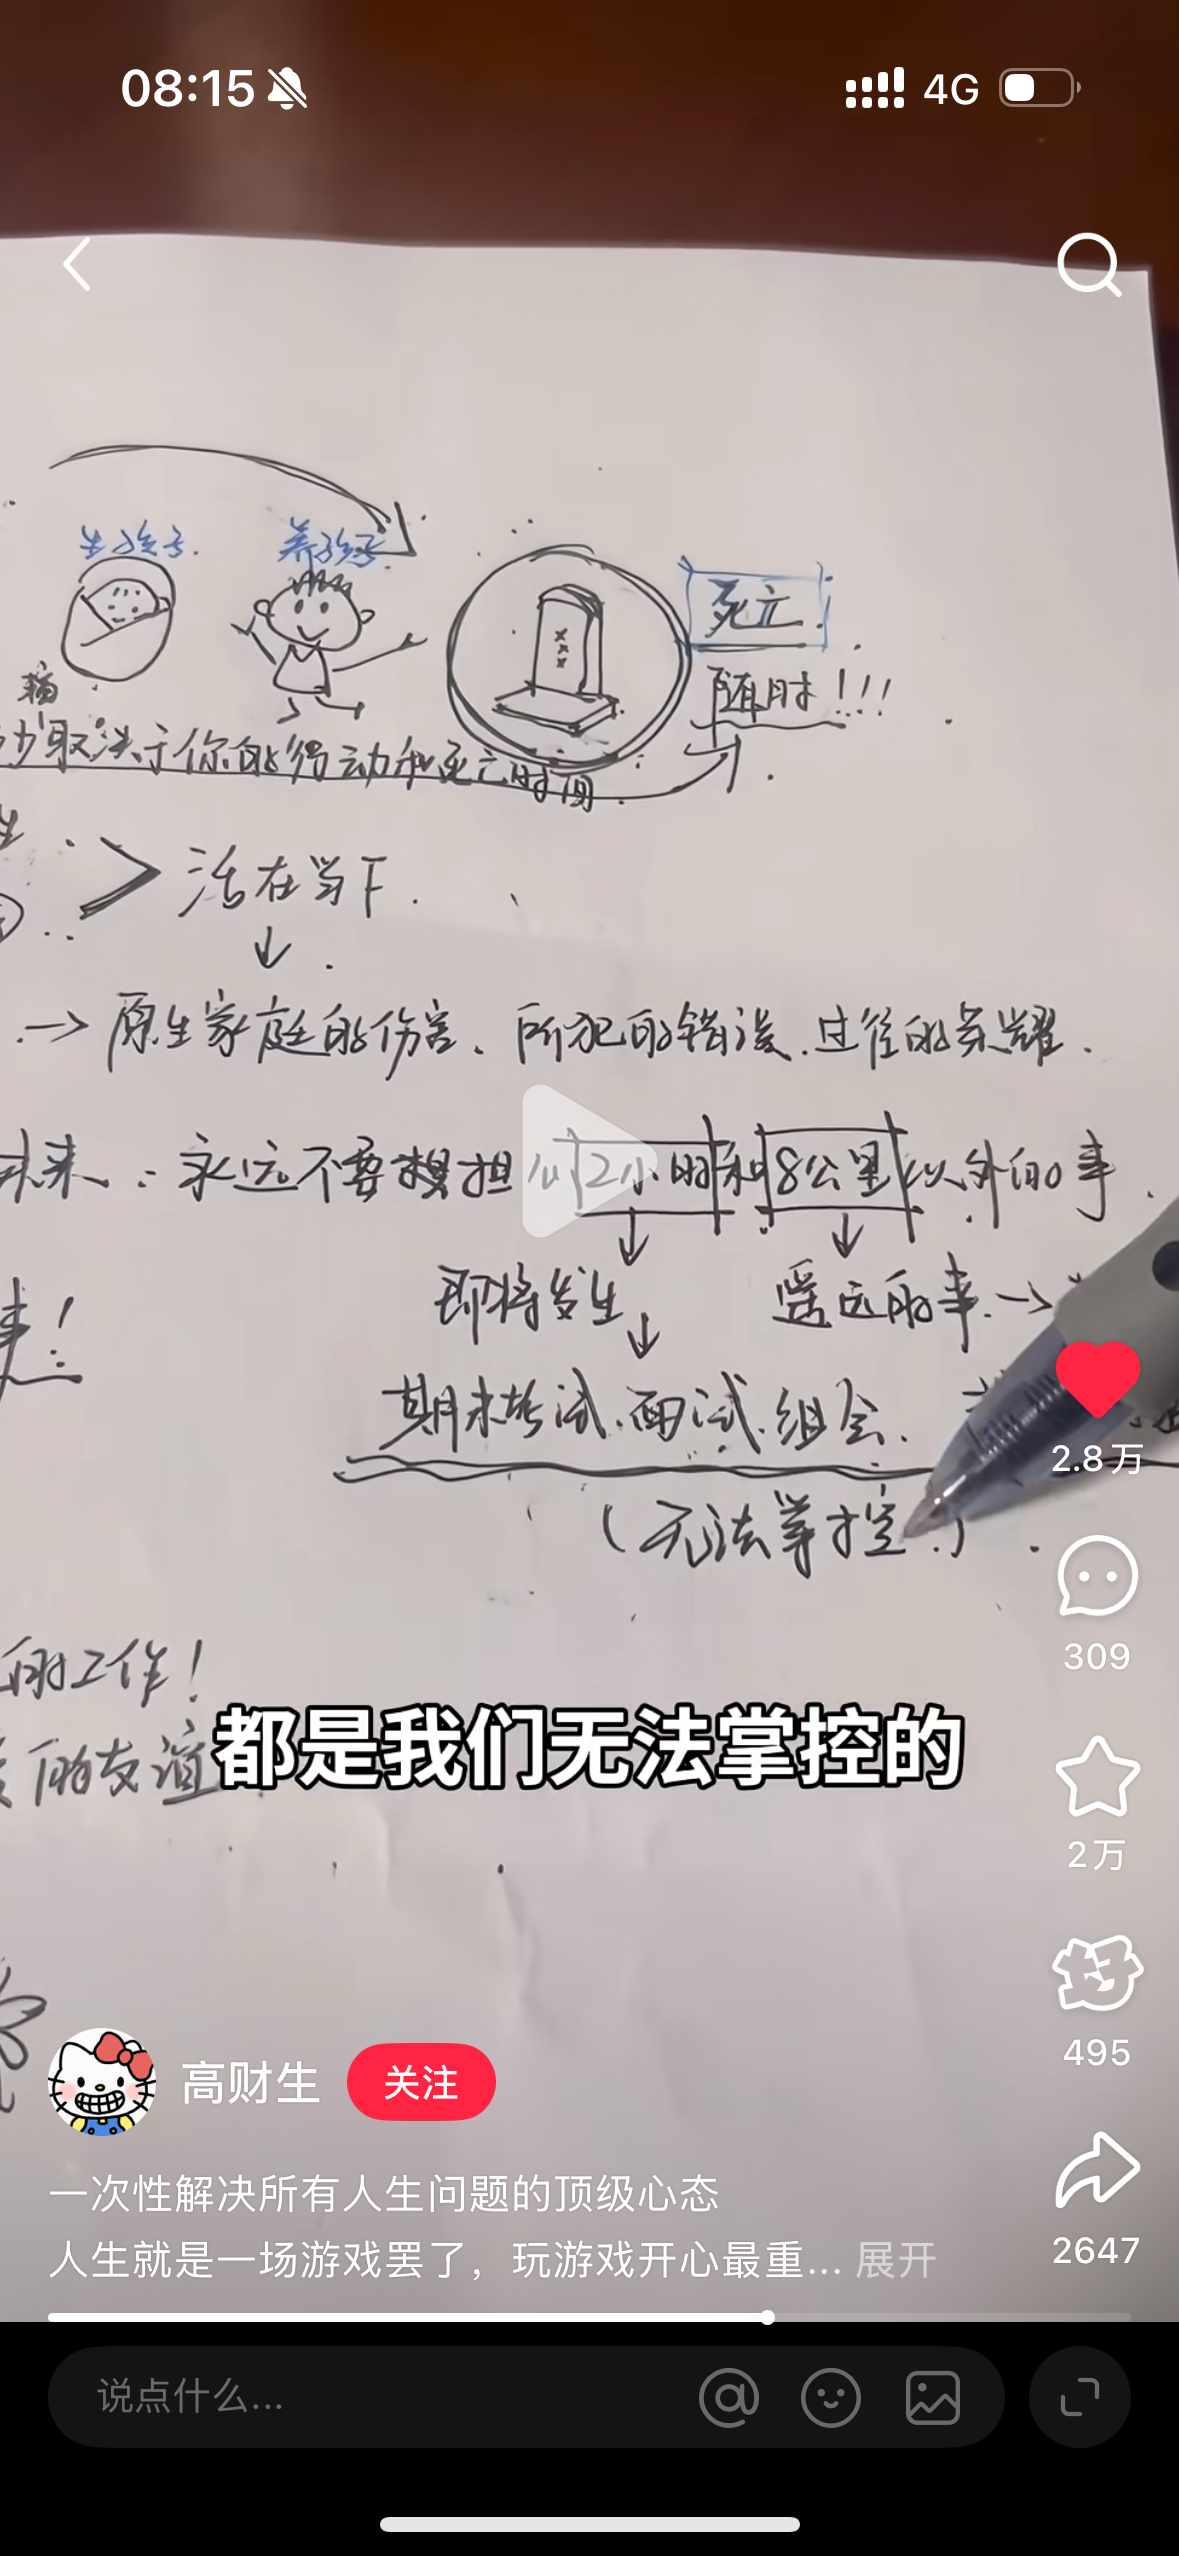 08:15
4G
生孩子.
养孩子.
死亡.
随时!!!
取决于你的行动和死亡时间.
生
> 活在当下.
→ 原生家庭的伤害、所犯的错误、过往的荣耀.
未来: 永远不要担 12小时和8公里以外的事.
即将发生
遥远的事. →
来!
期末考试.面试.组会.
(无法掌控.)
的工作!
的友谊
都是我们无法掌控的
2.8万
309
2万
495
2647
高财生
关注
一次性解决所有人生问题的顶级心态
人生就是一场游戏罢了，玩游戏开心最重... 展开
说点什么...